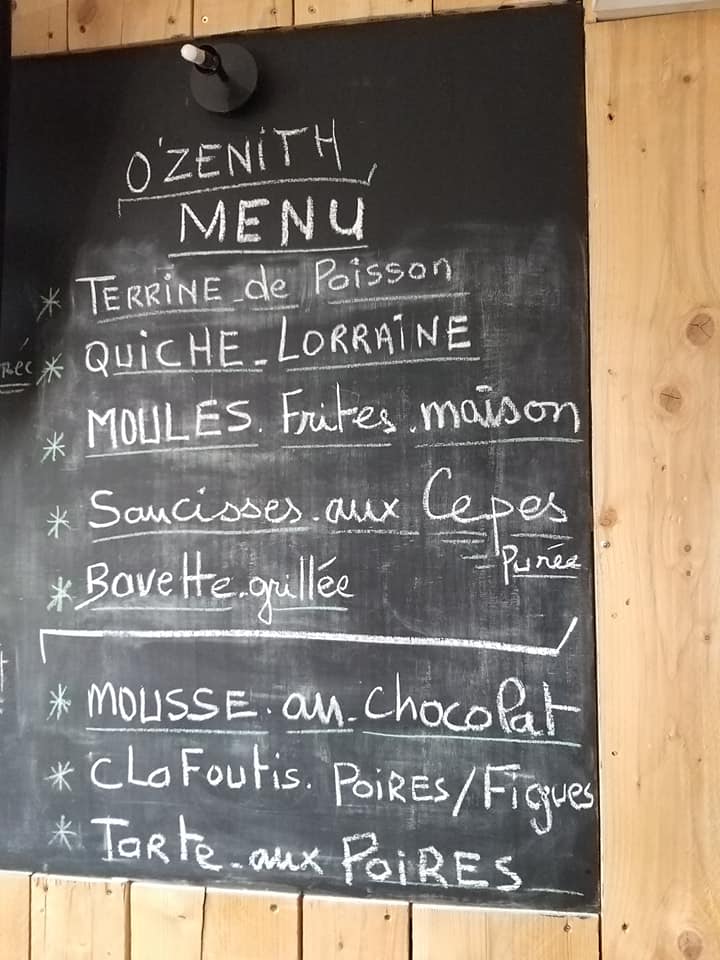 O'ZENITH
MENU
* TERRINE de Poisson
* QUICHE LORRAINE
* MOULES. Frites. maison
* Saucisses. aux Cepes
Purée
* Bavette. grillée
* MOUSSE. au. Chocolat
* CLaFoutis. POIRES/Figues
* Tarte. aux POIRES